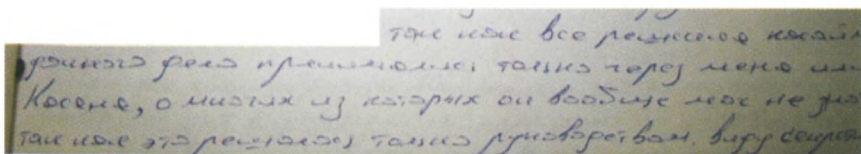 так как все решения касаем
данного дела принимались только через меня или
Косена, о многих из которых он вообще мог не зна
так как это решалось только руководством, ввиду секретн